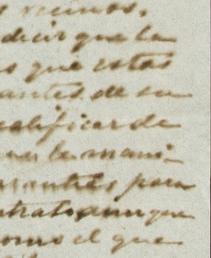 vecinos,
decir que la
s que estos
antes de su
calificar de
la mani-
para
trato aunque
como el que